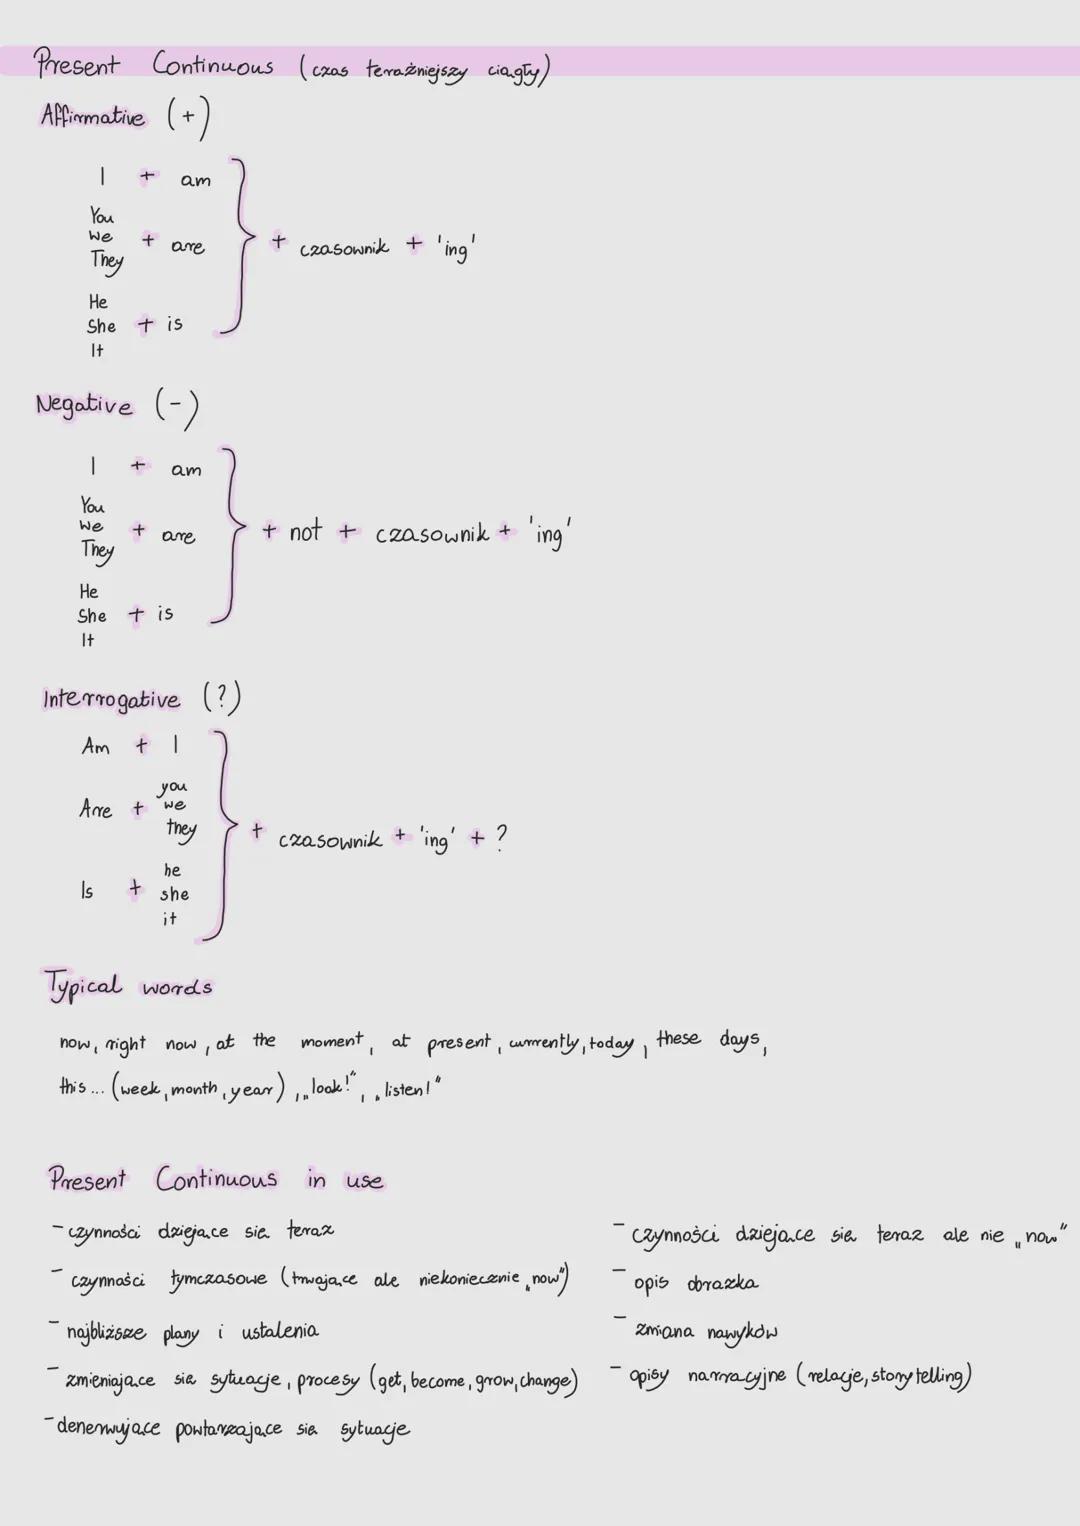 Present Continuous (czas teraźniejszy ciągły)
Affirmative (+)
I + am
You
we + are
They
+ czasownik + 'ing'
He
She + is
It
Negative (-)
I + am
You
we + are
They
+ not + czasownik + 'ing'
He
She + is
It
Interrogative (?)
Am + I
Are + you
we
they
+ czasownik + 'ing' + ?
Is + he
she
it
Typical words
now, right now, at the moment, at present, currently, today, these days,
this... (week, month, year), „look!”, „listen!”
Present Continuous in use
- czynności dziejące się teraz
- czynności tymczasowe (trwające ale niekoniecznie „now”)
- najbliższe plany i ustalenia
- zmieniające się sytuacje, procesy (get, become, grow, change)
- denerwujące powtarzające się sytuacje
- czynności dziejące się teraz ale nie „now”
- opis obrazka
- zmiana nawyków
- opisy narracyjne (relacje, storytelling)